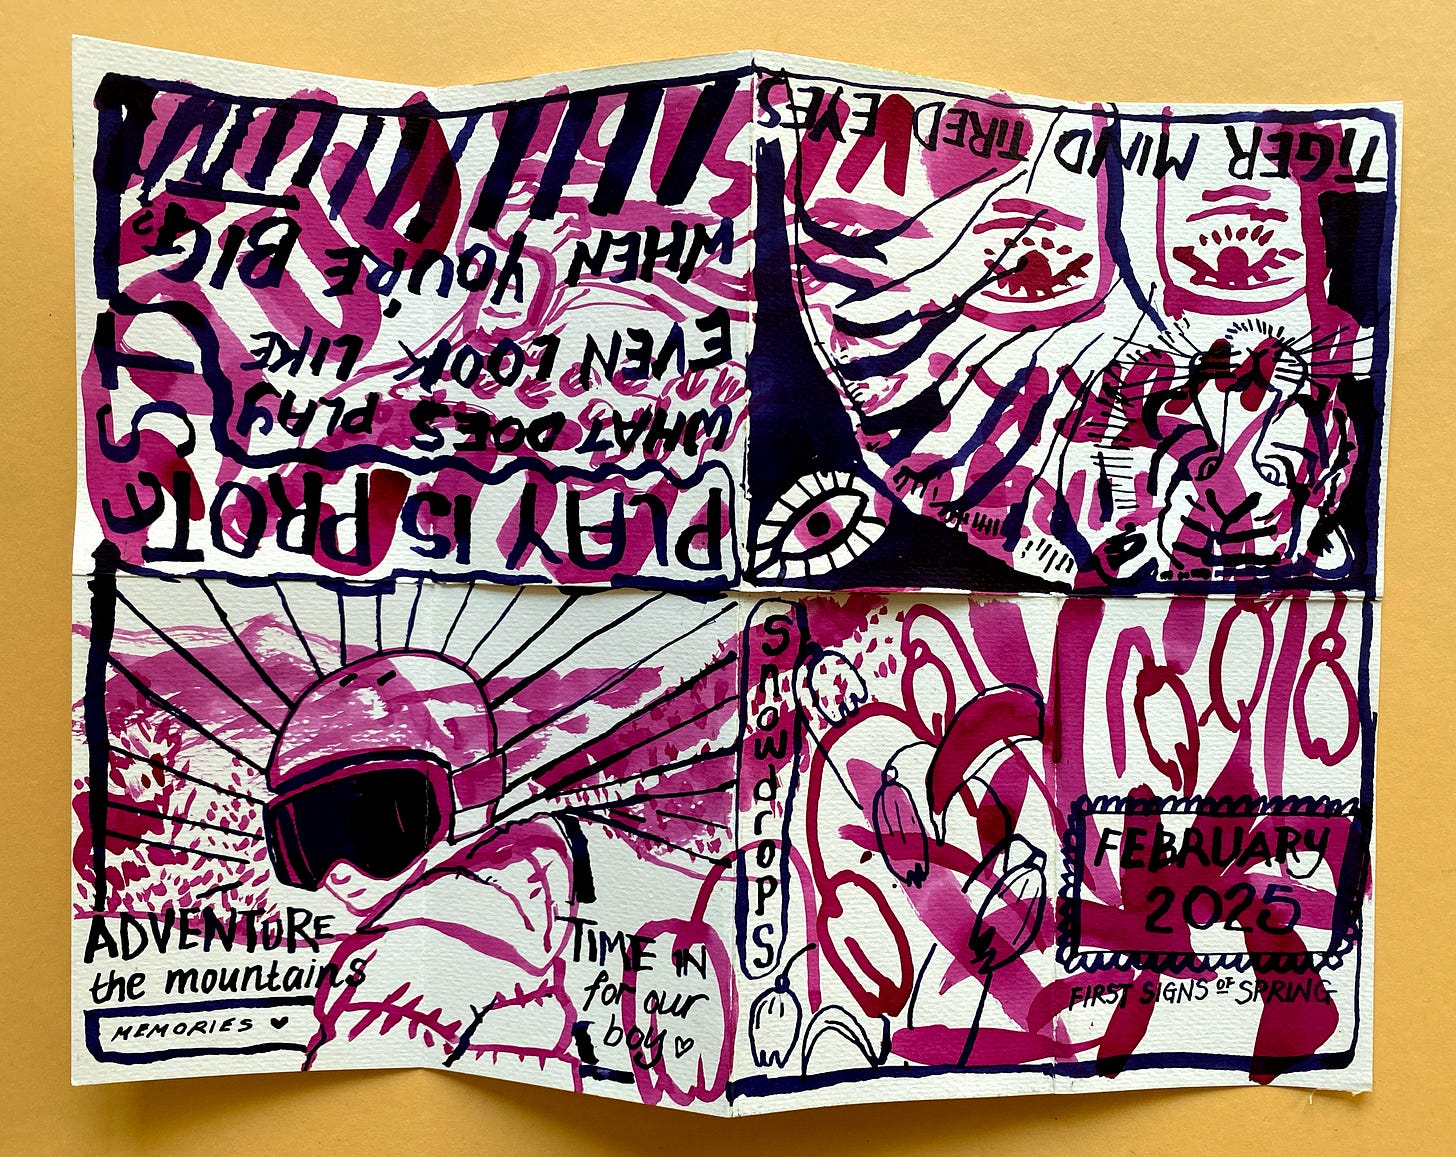 PLAY IS PROTEST
WHAT DOES PLAY
EVEN LOOK LIKE
WHEN YOU'RE BIG?
TIGER MIND TIRED EYES
ADVENTURE
the mountains
MEMORIES ♥
TIME IN
for our
boy ♡
Snowdrops
FEBRUARY
2025
FIRST SIGNS OF SPRING